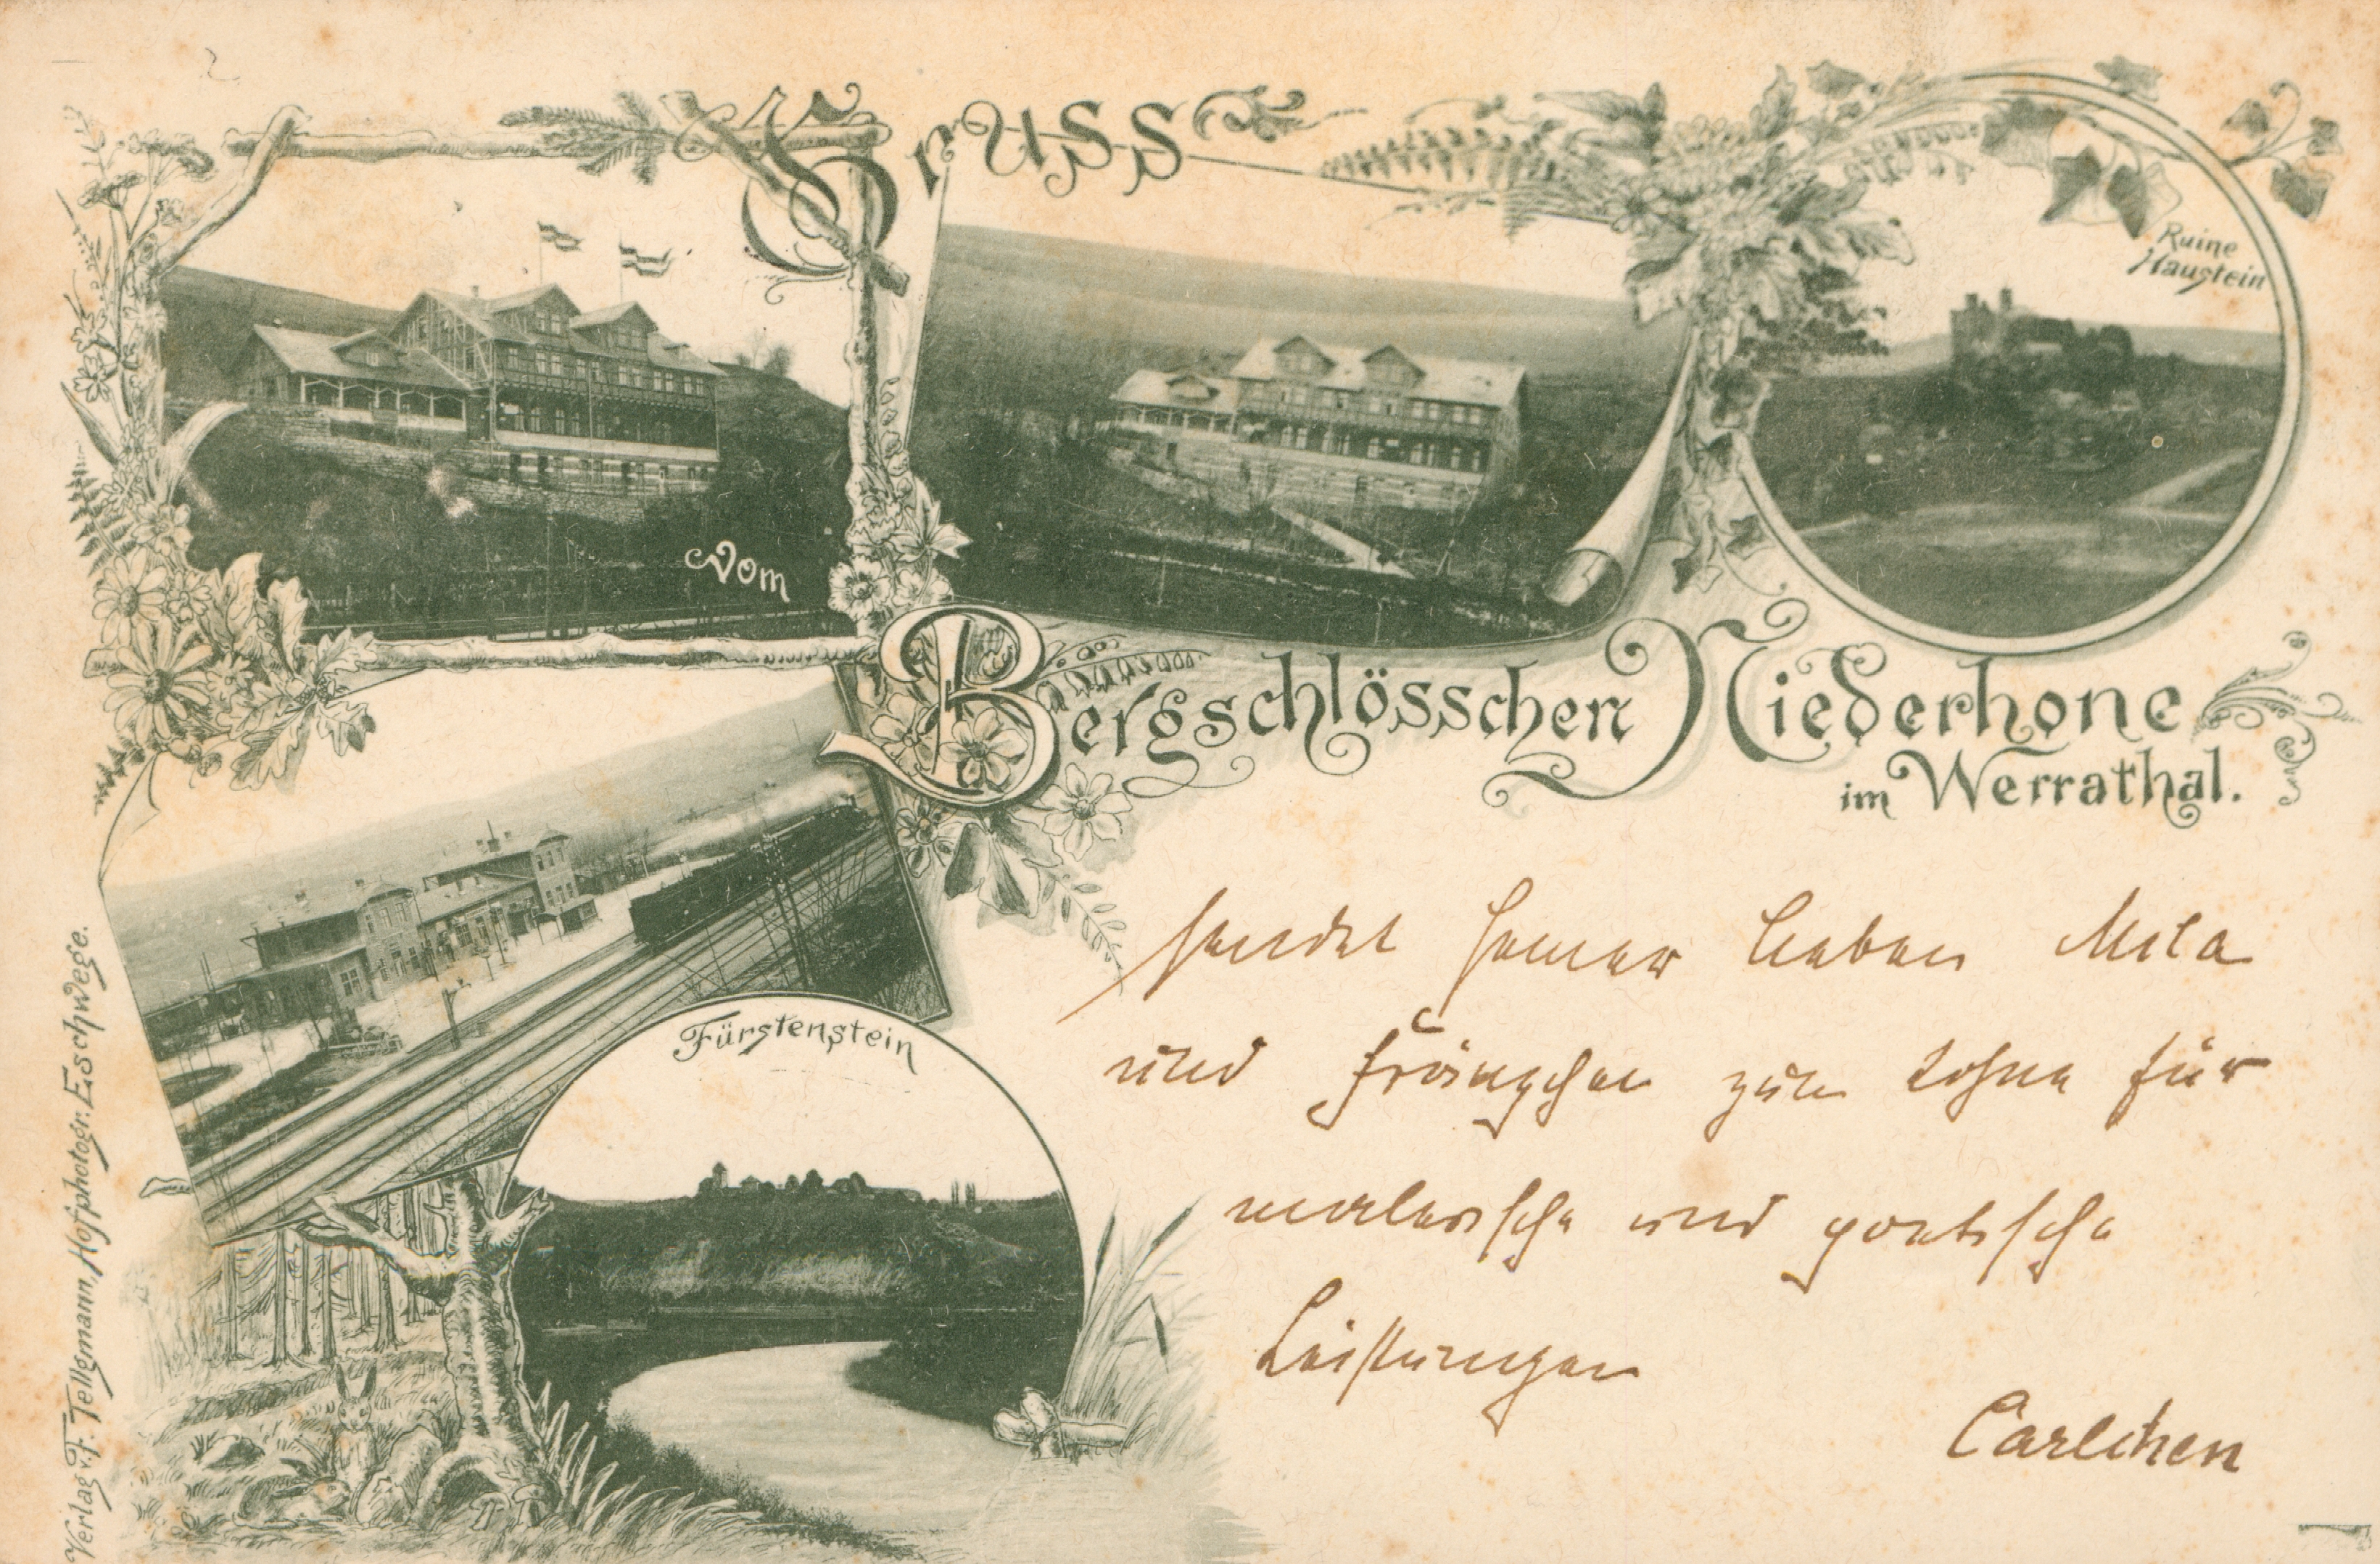 Gruss
Ruine
Haustein
vom
Bergschlösschen Niederhone
im Werrathal.
Fürstenstein
sendet seiner lieben Mila
und Fräüngchen zum Lohne für
malerische und poetische
Leistungen
Carlchen
Verlag v. F. Tellgmann, Hofphotogr. Eschwege.